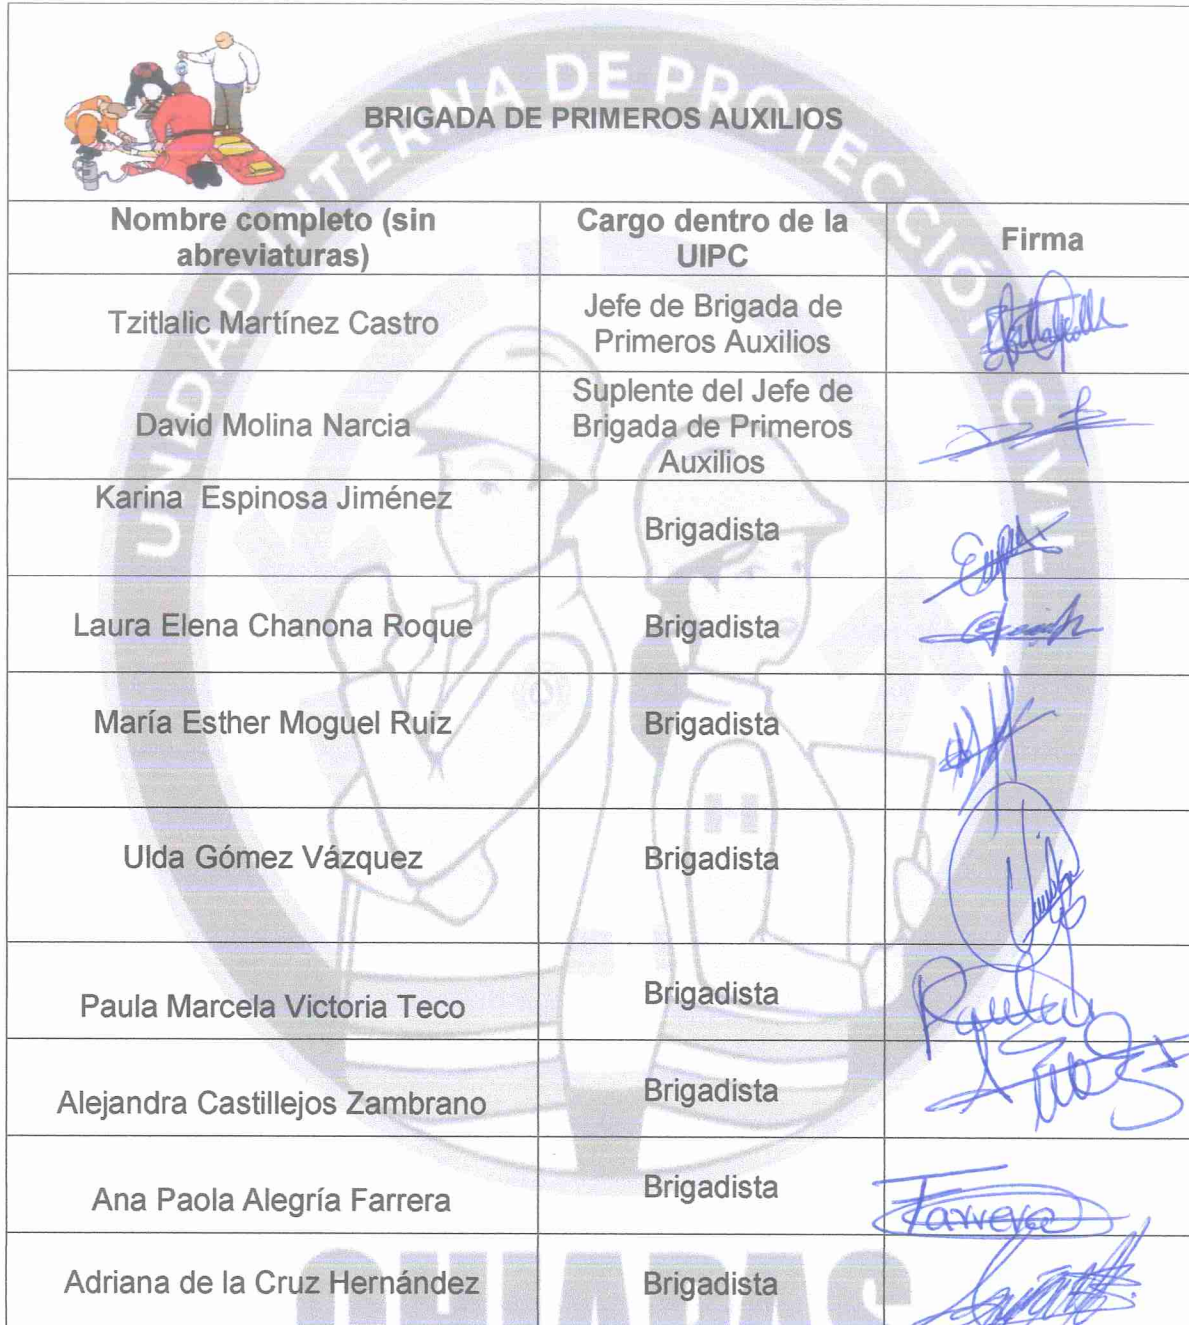 UNIDAD INTERNA DE PROTECCIÓN CIVIL
BRIGADA DE PRIMEROS AUXILIOS
Nombre completo (sin
abreviaturas)
Cargo dentro de la
UIPC
Firma
Tzitlalic Martínez Castro
Jefe de Brigada de
Primeros Auxilios
David Molina Narcia
Suplente del Jefe de
Brigada de Primeros
Auxilios
Karina Espinosa Jiménez
Brigadista
Laura Elena Chanona Roque
Brigadista
María Esther Moguel Ruiz
Brigadista
Ulda Gómez Vázquez
Brigadista
Paula Marcela Victoria Teco
Brigadista
Paula
Alejandra Castillejos Zambrano
Brigadista
Ana Paola Alegría Farrera
Brigadista
Farrera
Adriana de la Cruz Hernández
Brigadista
CHIAPAS